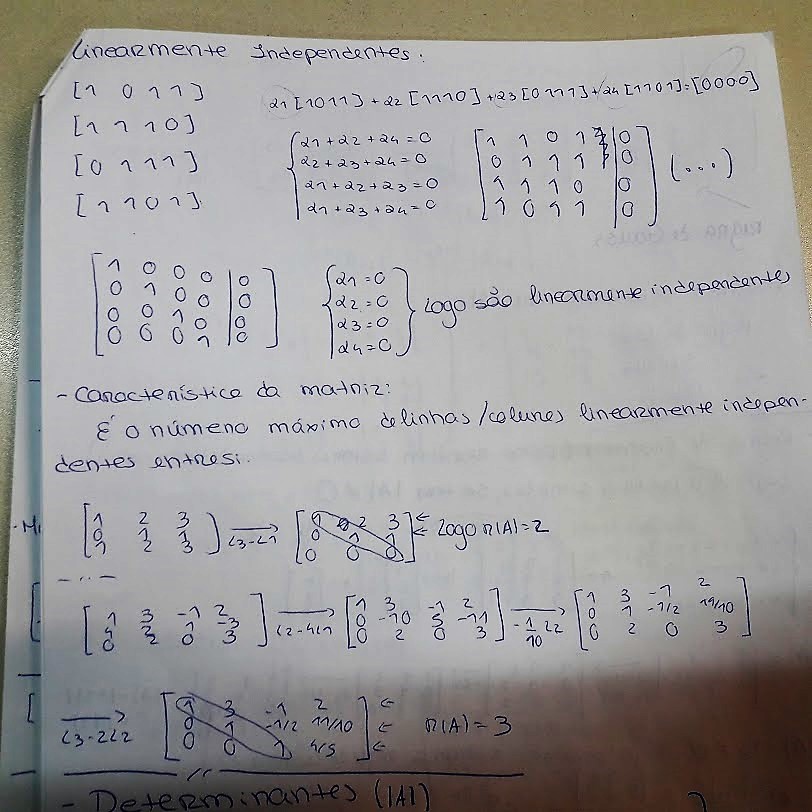 Linearmente Independentes:
[1 0 1 1]
[1 1 1 0]
[0 1 1 1]
[1 1 0 1]
α1 [1011] + α2 [1110] + α3 [0111] + α4 [1101] = [0000]
α1 + α2 + α4 = 0
α2 + α3 + α4 = 0
α1 + α2 + α3 = 0
α1 + α3 + α4 = 0
1 1 0 1 | 0
0 1 1 1 | 0
1 1 1 0 | 0
1 0 1 1 | 0
(...)
1 0 0 0 | 0
0 1 0 0 | 0
0 0 1 0 | 0
0 0 0 1 | 0
α1 = 0
α2 = 0
α3 = 0
α4 = 0
Logo são linearmente independentes
- Característica da matriz:
É o número máximo de linhas/colunas linearmente indepen-
dentes entre si.
1 2 3
0 1 1
1 2 3
L3-L1 →
1 2 3 ←
0 1 1 ←
0 0 0
Logo r(A)=2
1 3 -1 2
4 2 1 -3
0 2 0 3
L2-4L1 →
1 3 -1 2
0 -10 5 -11
0 2 0 3
-1/10 L2 →
1 3 -1 2
0 1 -1/2 11/10
0 2 0 3
L3-2L2 →
1 3 -1 2 ←
0 1 -1/2 11/10 ←
0 0 1 4/5 ←
r(A) = 3
- Determinantes (|A|)